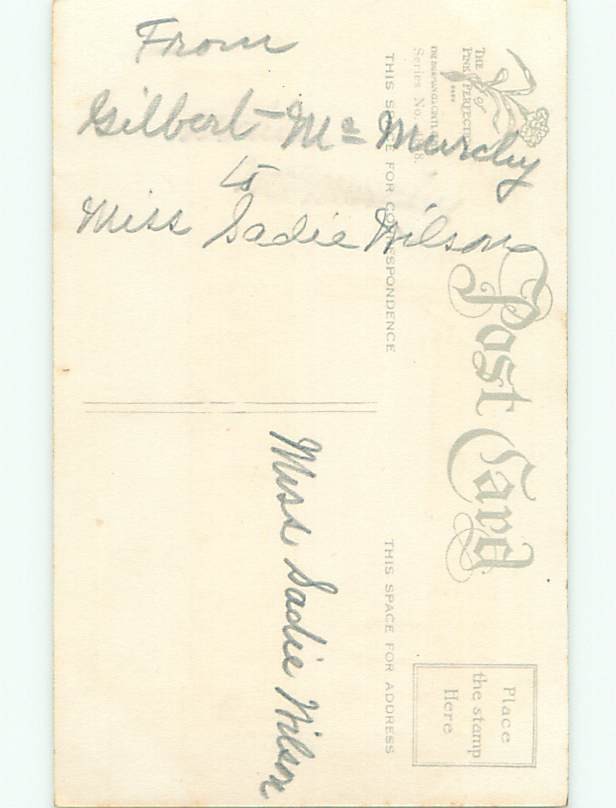 From
Gilbert Mc Murchy
to
Miss Sadie Wilson
THE
PINK of PERFECTION
Series No.
THIS SPACE FOR CORRESPONDENCE
Post Card
Miss Sadie Wilson
THIS SPACE FOR ADDRESS
Place
the stamp
Here